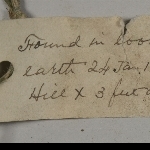 Found in loo
earth 24 Jan 1
Hill X 3 feet